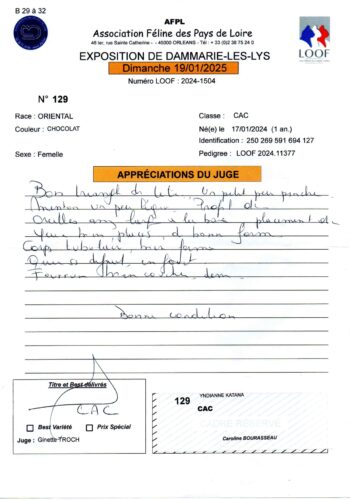 B 29 à 32
AFPL
Association Féline des Pays de Loire
46 ter, rue Sainte Catherine - - 45000 ORLEANS - Tél : + 33 (0)2 38 75 24 0
LOOF
EXPOSITION DE DAMMARIE-LES-LYS
Dimanche 19/01/2025
Numéro LOOF : 2024-1504
N° 129
Race : ORIENTAL
Classe : CAC
Couleur : CHOCOLAT
Né(e) le 17/01/2024 (1 an.)
Identification : 250 269 591 694 127
Sexe : Femelle
Pedigree : LOOF 2024.11377
APPRÉCIATIONS DU JUGE
Bon triangle de tête. Un petit peu
Menton un peu Profil
Oreilles large à la base, placement
Yeux bien placés, de bonne forme
Corps tubulaire, bien
Queue
Fourrure bien couchée,
Bonne condition
Titre et Best délivrés
CAC
Best Variété
Prix Spécial
Juge : Ginette TROCH
129
YNDIANNE KATANA
CAC
CADRE RESERVE
Caroline BOURASSEAU